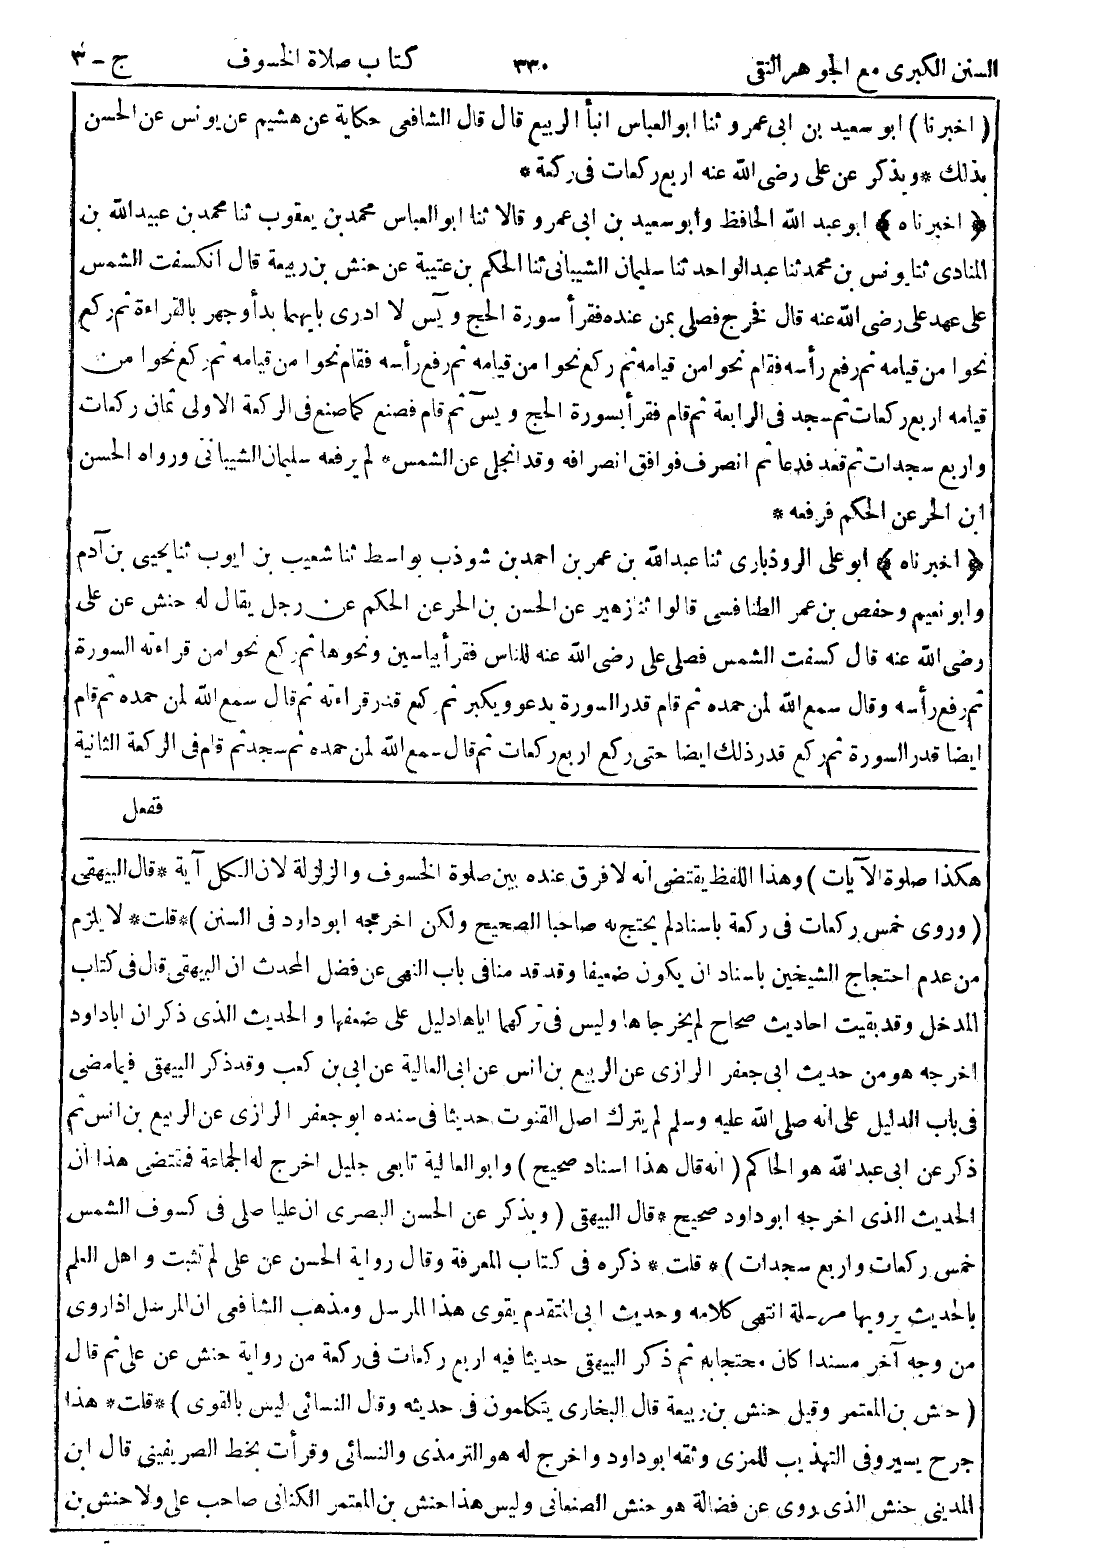 السنن الكبرى مع الجوهر النقى ٣٣٠ كتاب صلاة الخسوف ج - ٣
( اخبرنا ) ابو سعيد بن ابى عمرو ثنا ابو العباس انبأ الربيع قال قال الشافعى حكاية عن هشيم عن يونس عن الحسن
بذلك * ويذكر عن على رضى الله عنه اربع ركعات فى ركعة *
﴿ اخبرناه ﴾ ابو عبد الله الحافظ وأبو سعيد بن ابى عمرو قالا ثنا ابو العباس محمد بن يعقوب ثنا محمد بن عبيد الله بن
المنادى ثنا يونس بن محمد ثنا عبد الواحد ثنا سليمان الشيبانى ثنا الحكم بن عتيبة عن حنش بن ربيعة قال انكسفت الشمس
على عهد على رضى الله عنه قال فخرج فصلى بمن عنده فقرأ سورة الحج ويٓس لا ادرى بايهما بدأ وجهر بالقراءة ثم ركع
نحوا من قيامه ثم رفع رأسه فقام نحوا من قيامه ثم ركع نحوا من قيامه ثم رفع رأسه فقام نحوا من قيامه ثم ركع نحوا من
قيامه اربع ركعات ثم سجد فى الرابعة ثم قام فقرأ بسورة الحج ويسٓ ثم قام فصنع كما صنع فى الركعة الاولى ثمان ركعات
واربع سجدات ثم قعد فدعا ثم انصرف فوافق انصرافه وقد انجلى عن الشمس * لم يرفعه سليمان الشيبانى ورواه الحسن
ابن الحر عن الحكم فرفعه *
﴿ اخبرناه ﴾ ابو على الروذبارى ثنا عبد الله بن عمر بن احمد بن شوذب بواسط ثنا شعيب بن ايوب ثنا يحيى بن آدم
وابو نعيم وحفص بن عمر الطنافسى قالوا ثنا زهير عن الحسن بن الحر عن الحكم عن رجل يقال له حنش عن على
رضى الله عنه قال كسفت الشمس فصلى على رضى الله عنه للناس فقرأ بياسين ونحوها ثم ركع نحوا من قراءته السورة
ثم رفع رأسه وقال سمع الله لمن حمده ثم قام قدر السورة يدعو ويكبر ثم ركع قدر قراءته ثم قال سمع الله لمن حمده ثم قام
ايضا قدر السورة ثم ركع قدر ذلك ايضا حتى ركع اربع ركعات ثم قال سمع الله لمن حمده ثم سجد ثم قام فى الركعة الثانية
ففعل
هكذا صلوة الآيات ) وهذا اللفظ يقتضى انه لا فرق عنده بين صلوة الخسوف والزلزلة لان الكل آية * قال البيهقى
( وروى خمس ركعات فى ركعة باسناد لم يحتج به صاحبا الصحيح ولكن اخرجه ابو داود فى السنن ) * قلت * لا يلزم
من عدم احتجاج الشيخين باسناد ان يكون ضعيفا وقد قدمنا فى باب النهى عن فضل المحدث ان البيهقى قال فى كتاب
المدخل وقد بقيت احاديث صحاح لم يخرجاها وليس فى تركهما اياها دليل على ضعفها والحديث الذى ذكر ان اباداود
اخرجه هو من حديث ابى جعفر الرازى عن الربيع بن انس عن ابى العالية عن ابى بن كعب وقد ذكر البيهقى فيما مضى
فى باب الدليل على انه صلى الله عليه وسلم لم يترك اصل القنوت حديثا فى سنده ابو جعفر الرازى عن الربيع بن انس ثم
ذكر عن ابى عبد الله هو الحاكم ( انه قال هذا اسناد صحيح ) وابو العالية تابعى جليل اخرج له الجماعة فمقتضى هذا ان
الحديث الذى اخرجه ابو داود صحيح * قال البيهقى ( ويذكر عن الحسن البصرى ان عليا صلى فى كسوف الشمس
خمس ركعات واربع سجدات ) * قلت * ذكره فى كتاب المعرفة وقال رواية الحسن عن على لم تثبت واهل العلم
بالحديث يرويها مرسلة انتهى كلامه وحديث ابى المتقدم يقوى هذا المرسل ومذهب الشافعى ان المرسل اذا روى
من وجه آخر مسندا كان محتجا به ثم ذكر البيهقى حديثا فيه اربع ركعات فى ركعة من رواية حنش عن على ثم قال
( حنش بن المعتمر وقيل حنش بن ربيعة قال البخارى يتكلمون فى حديثه وقال النسائى ليس بالقوى ) * قلت * هذا
جرح يسير وفى التهذيب للمزى وثقه ابو داود واخرج له هو الترمذى والنسائى وقرأت بخط الصريفينى قال ابن
المدينى حنش الذى روى عن فضالة هو حنش الصنعانى وليس هذا حنش بن المعتمر الكنانى صاحب على ولا حنش بن